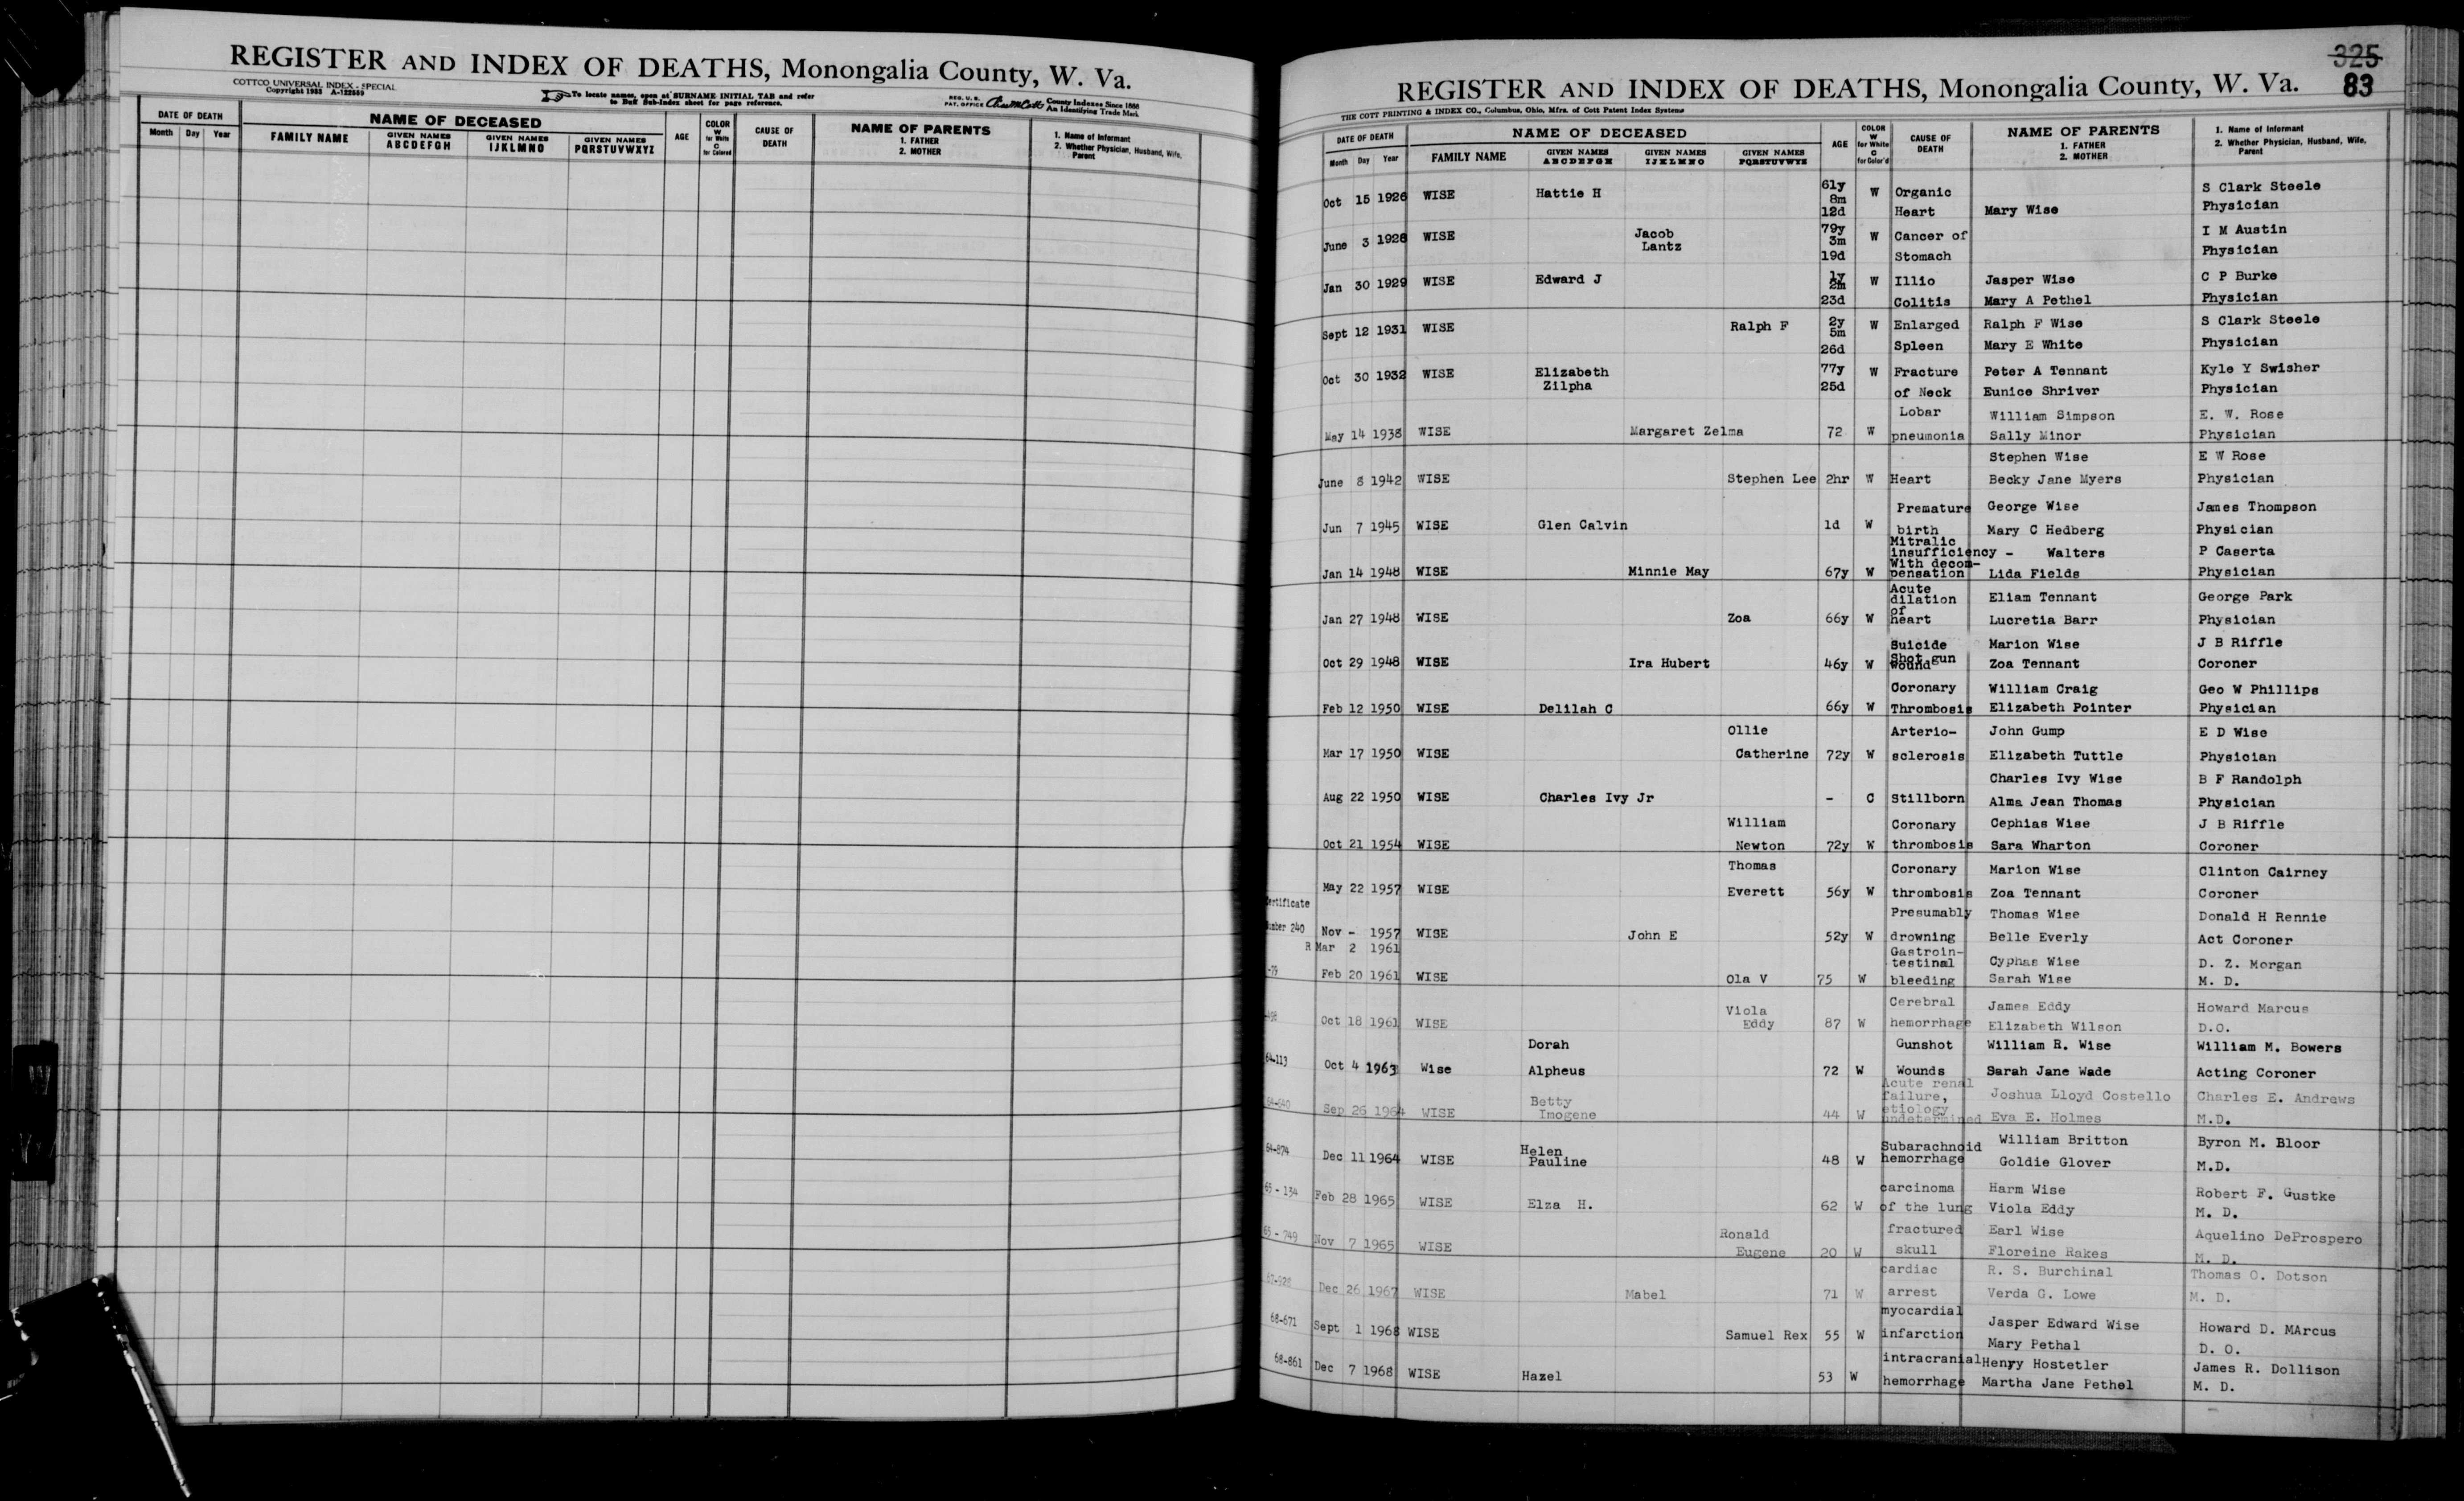 REGISTER AND INDEX OF DEATHS, Monongalia County, W. Va.
COTTCO UNIVERSAL INDEX - SPECIAL
Copyright 1933 A-122859
To locate names, open at SURNAME INITIAL TAB and refer
to Buff Sub-Index sheet for page reference.
REG. U. S.
PAT. OFFICE
County Indexes Since 1888
An Identifying Trade Mark
DATE OF DEATH NAME OF DECEASED AGE COLOR W for White C for Colored CAUSE OF DEATH NAME OF PARENTS 1. FATHER 2. MOTHER 1. Name of Informant 2. Whether Physician, Husband, Wife, Parent
Month Day Year FAMILY NAME GIVEN NAMES ABCDEFGH GIVEN NAMES IJKLMNO GIVEN NAMES PQRSTUVWXYZ
325
83
REGISTER AND INDEX OF DEATHS, Monongalia County, W. Va.
THE COTT PRINTING & INDEX CO., Columbus, Ohio, Mfrs. of Cott Patent Index Systems
DATE OF DEATH NAME OF DECEASED AGE COLOR W for White C for Color'd CAUSE OF DEATH NAME OF PARENTS 1. FATHER 2. MOTHER 1. Name of Informant 2. Whether Physician, Husband, Wife, Parent
Month Day Year FAMILY NAME GIVEN NAMES ABCDEFGH GIVEN NAMES IJKLMNO GIVEN NAMES PQRSTUVWXYZ
Oct 15 1926 WISE Hattie H 61y 8m 12d W Organic S Clark Steele
Heart Mary Wise Physician
June 3 1928 WISE Jacob Lantz 79y 3m 19d W Cancer of I M Austin
Stomach Physician
Jan 30 1929 WISE Edward J 1y 2m 23d W Illio Jasper Wise C P Burke
Colitis Mary A Pethel Physician
Sept 12 1931 WISE Ralph F 2y 5m 26d W Enlarged Ralph F Wise S Clark Steele
Spleen Mary E White Physician
Oct 30 1932 WISE Elizabeth Zilpha 77y 25d W Fracture Peter A Tennant Kyle Y Swisher
of Neck Eunice Shriver Physician
Lobar William Simpson E. W. Rose
May 14 1938 WISE Margaret Zelma 72 W pneumonia Sally Minor Physician
Stephen Wise E W Rose
June 8 1942 WISE Stephen Lee 2hr W Heart Becky Jane Myers Physician
Premature George Wise James Thompson
Jun 7 1945 WISE Glen Calvin 1d W birth Mary C Hedberg Physician
Mitralic
insufficiency - Walters P Caserta
With decom-
Jan 14 1948 WISE Minnie May 67y W pensation Lida Fields Physician
Acute
dilation Eliam Tennant George Park
of
Jan 27 1948 WISE Zoa 66y W heart Lucretia Barr Physician
Suicide Marion Wise J B Riffle
Shot gun
Oct 29 1948 WISE Ira Hubert 46y W wound Zoa Tennant Coroner
Coronary William Craig Geo W Phillips
Feb 12 1950 WISE Delilah C 66y W Thrombosis Elizabeth Pointer Physician
Ollie Arterio- John Gump E D Wise
Mar 17 1950 WISE Catherine 72y W sclerosis Elizabeth Tuttle Physician
Charles Ivy Wise B F Randolph
Aug 22 1950 WISE Charles Ivy Jr - C Stillborn Alma Jean Thomas Physician
William Coronary Cephias Wise J B Riffle
Oct 21 1954 WISE Newton 72y W thrombosis Sara Wharton Coroner
Thomas Coronary Marion Wise Clinton Cairney
May 22 1957 WISE Everett 56y W thrombosis Zoa Tennant Coroner
Certificate Presumably Thomas Wise Donald H Rennie
Number 240 Nov - 1957 WISE John E 52y W drowning Belle Everly Act Coroner
R Mar 2 1961
Gastroin-
testinal Cyphas Wise D. Z. Morgan
-79 Feb 20 1961 WISE Ola V 75 W bleeding Sarah Wise M. D.
Viola Cerebral James Eddy Howard Marcus
-498 Oct 18 1961 WISE Eddy 87 W hemorrhage Elizabeth Wilson D.O.
Dorah Gunshot William R. Wise William M. Bowers
64-113 Oct 4 1963 Wise Alpheus 72 W Wounds Sarah Jane Wade Acting Coroner
Acute renal
Betty failure, Joshua Lloyd Costello Charles E. Andrews
etiology
64-640 Sep 26 1964 WISE Imogene 44 W undetermined Eva E. Holmes M.D.
Helen Subarachnoid William Britton Byron M. Bloor
64-874 Dec 11 1964 WISE Pauline 48 W hemorrhage Goldie Glover M.D.
carcinoma Harm Wise Robert F. Gustke
65-134 Feb 28 1965 WISE Elza H. 62 W of the lung Viola Eddy M. D.
Ronald fractured Earl Wise Aquelino DeProspero
65-749 Nov 7 1965 WISE Eugene 20 W skull Floreine Rakes M. D.
cardiac R. S. Burchinal Thomas O. Dotson
67-928 Dec 26 1967 WISE Mabel 71 W arrest Verda G. Lowe M. D.
myocardial Jasper Edward Wise Howard D. MArcus
68-671 Sept 1 1968 WISE Samuel Rex 55 W infarction Mary Pethal D. O.
intracranial Henry Hostetler James R. Dollison
68-861 Dec 7 1968 WISE Hazel 53 W hemorrhage Martha Jane Pethel M. D.